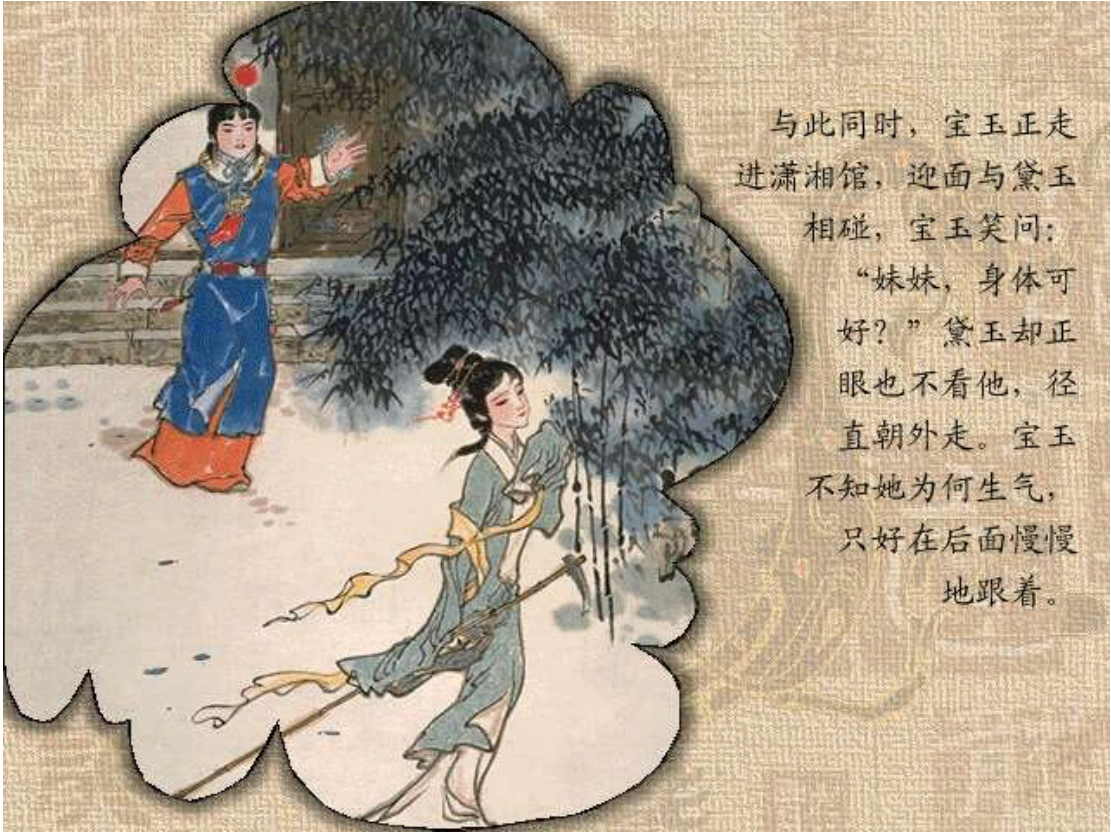 与此同时，宝玉正走
进潇湘馆，迎面与黛玉
相碰，宝玉笑问：
“妹妹，身体可
好？”黛玉却正
眼也不看他，径
直朝外走。宝玉
不知她为何生气，
只好在后面慢慢
地跟着。